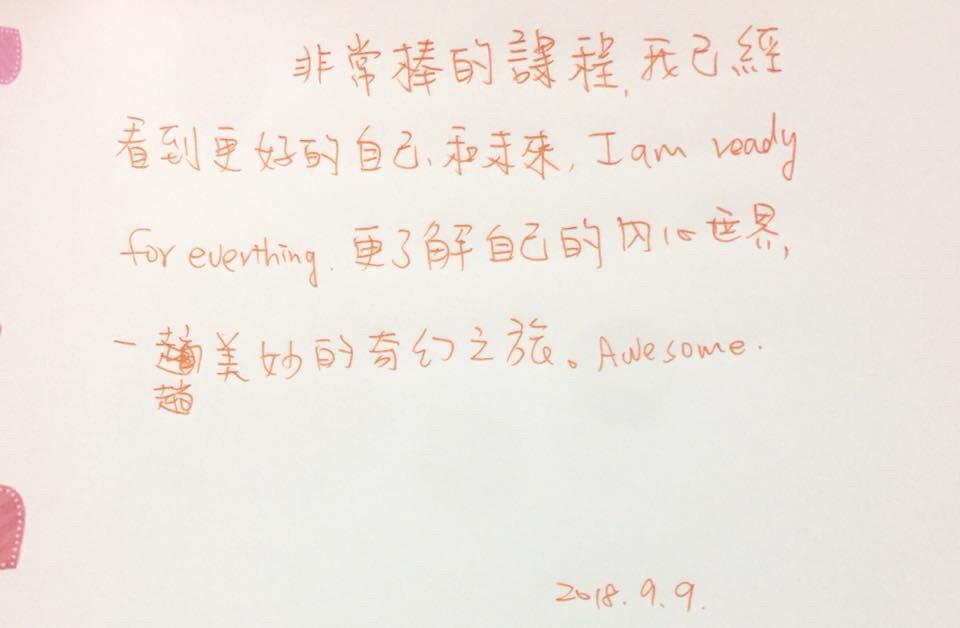 非常棒的課程,我已經
看到更好的自己、和未來, I am ready
for everthing. 更了解自己的內心世界,
一趟美妙的奇幻之旅。Awesome.
趟
2018.9.9.